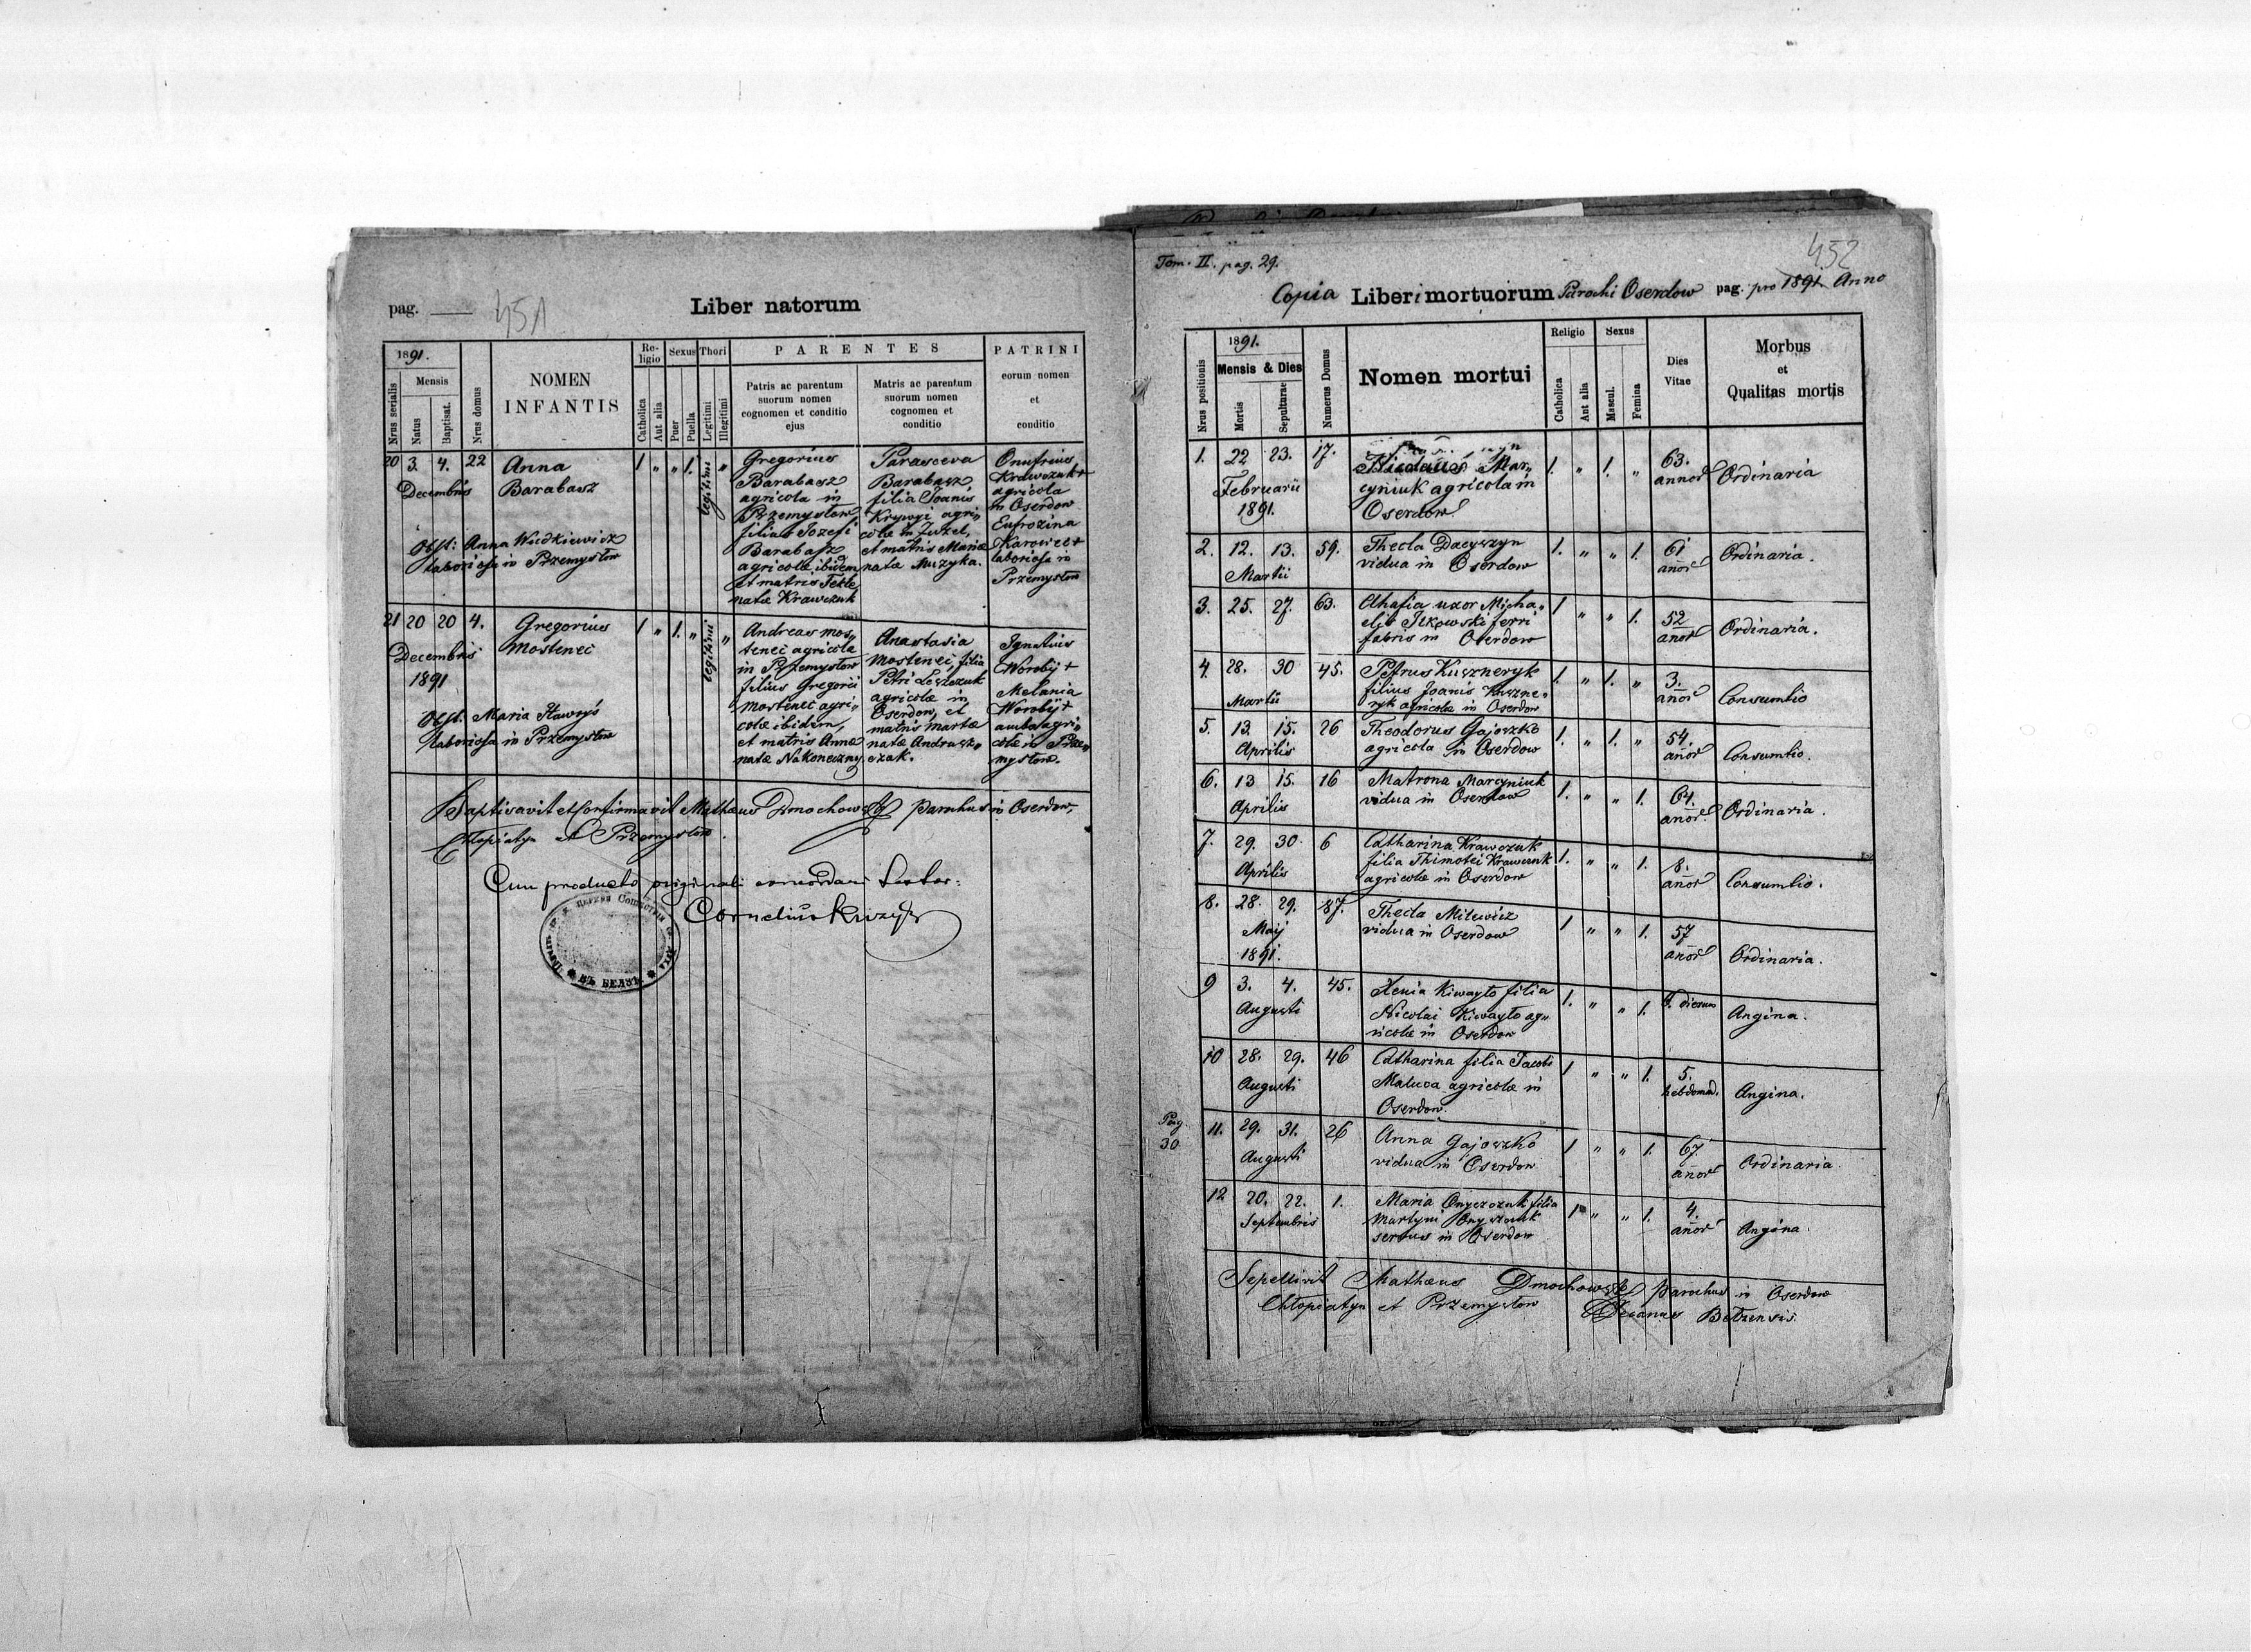 pag. 451
Liber natorum
1891.
Nrus serialis
Mensis
Natus
Baptisat.
Nrus domus
NOMEN
INFANTIS
Re-
ligio
Catholica
Aut alia
Sexus
Puer
Puella
Thori
Legitimi
Illegitimi
PARENTES
Patris ac parentum
suorum nomen
cognomen et conditio
ejus
Matris ac parentum
suorum nomen
cognomen et
conditio
PATRINI
eorum nomen
et
conditio
20 3. 4. 22 Anna 1 " " 1. legitimi "
Decembris Barabasz
Obst: Anna
laboriosa in Przemysłow
Gregorius
Barabasz
agricola in
Przemysłow
filius Jozefi
Barabasz
agricolæ ibidem
et matris Teklæ
natæ Krawczuk
Parasceva
Barabasz
filia Joanis
Krywyi agri„
colæ in Zuzel,
et matris Mariæ
natæ Muzyka.
Onufrius
Krawczuk +
agricola
in Oserdow
Eufrozina
Karowec +
laboriosa in
Przemysłow
21 20 20 4. Gregorius 1 " 1. " legitimi "
Decembris Mostenci
1891
Obst. Maria Hawryś
laboriosa in Przemysłow
Andreas Mos„
tenci agricola
in Przemysłow
filius Gregorii
Mostenci agri„
colæ ibidem,
et matris Annæ
natæ Nakoneczny
Anastasia
Mostenci, filia
Petri Leszczuk
agricolæ in
Oserdow, et
matris Martæ
natæ Andrusz„
czak.
Ignatius
Worobij +
Melania
Worobij +
ambo agri„
colæ in Prze„
mysłow.
Baptisavit et confirmavit Mathæus Dmochowski parochus in Oserdow,
Chłopiatyn et Przemysłow.
Cum producto originali concordari testor:
Cornelius
ВЪ БЕЛЗѢ
Tom. II. pag. 29.
452
Copia Liberi mortuorum Parochi Oserdow pag. pro 1891. Anno
Nrus positionis
1891.
Mensis & Dies
Mortis
Sepulturae
Numerus Domus
Nomen mortui
Religio
Catholica
Aut alia
Sexus
Mascul.
Femina
Dies
Vitae
Morbus
et
Qualitas mortis
1. 22 23. 17. Nicolaus Mar„ 1. " 1. " 63. Ordinaria
Februarii cyniuk agricola in annor
1891. Oserdow
2. 12. 13. 59. Thecla Dacyszyn 1. " " 1. 61 Ordinaria.
Martii vidua in Oserdow añor
3. 25. 27. 63. Ahafia uxor Micha„ 1 " " 1. 52 Ordinaria.
elis Ilkowski ferri añor
fabris in Oserdow
4. 28. 30 45. Petrus Kuszneryk 1. " 1. " 3. Consumtio
Martii filius Joanis Kuszne„ añor
ryk agricolæ in Oserdow
5. 13. 15. 26 Theodorus Gajoszko 1. " 1. " 54. Consumtio.
Aprilis agricola in Oserdow añor
6. 13 15. 16 Matrona Marcyniuk 1. " " 1. 64. Ordinaria.
Aprilis vidua in Oserdow añor.
7. 29. 30. 6 Catharina Krawczuk 1. " " 1. 8. Consumtio.
Aprilis filia Thimotei Krawczuk añor
agricolæ in Oserdow
8. 28. 29. 87. Thecla Milewicz 1 " " 1. 57 Ordinaria.
Maij vidua in Oserdow añor
1891.
9 3. 4. 45. Xenia Kiwayło filia 1. " " 1. dierum Angina.
Augusti Nicolai Kiwayło ag„
ricolæ in Oserdow
10 28. 29. 46 Catharina filia Jacobi 1 " " 1. 5. Angina.
Augusti Maluca agricolæ in hebdomad.
Oserdow.
Pag
30
11. 29. 31. 26 Anna Gajoszko 1 " " 1. 67 Ordinaria.
Augusti vidua in Oserdow añor
12 20. 22. 1. Maria Onyszczuk filia 1 " " 1. 4. Angina.
Septembris Martyni Onyszczuk añor
servus in Oserdow
Sepellivit Mathæus Dmochowski parochus in Oserdow
Chłopiatyn et Przemysłow Decanus Bełzensis.